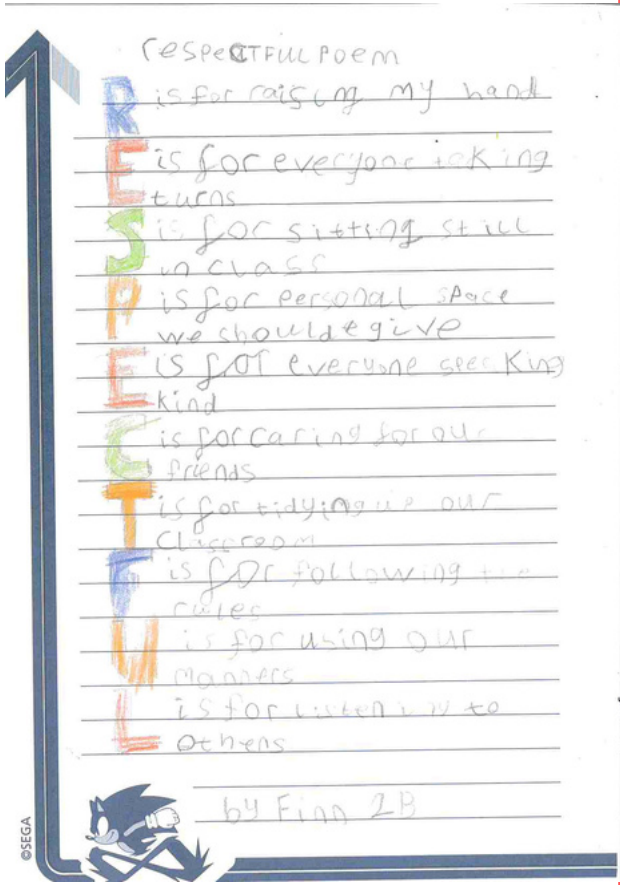 resPeCTFUL Poem
R is for raising my hand
E is for everyone taking
turns
S is for sitting still
in class
P is for Personal sPace
we should give
E is for everyone speeKing
kind
C is for caring for our
friends
T is for tidying up our
Classroom
F is for following the
rules
U is for using our
manners
L is for listening to
others
by Finn 2B
©SEGA